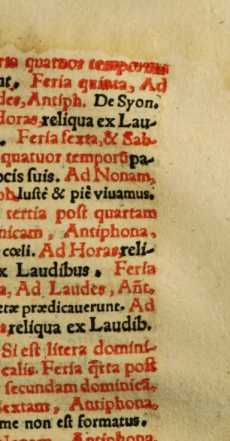 quatuor temporum
nt, Feria quinta, Ad
des, Antiph. De Syon.
Horas, reliqua ex Lau-
. Feria sexta, & Sab-
quatuor temporũ pa-
ocis suis. Ad Nonam,
ph. Iustè & piè viuamus.
tertia post quartam
nicam, Antiphona,
cœli. Ad Horas, reli-
x Laudibus. Feria
a, Ad Laudes, Añt.
etæ prædicauerunt. Ad
s, reliqua ex Laudib.
Si est litera domini-
calis. Feria q̃rta post
secundam dominicã,
Sextam, Antiphona,
me non est formatus.
Antiphona